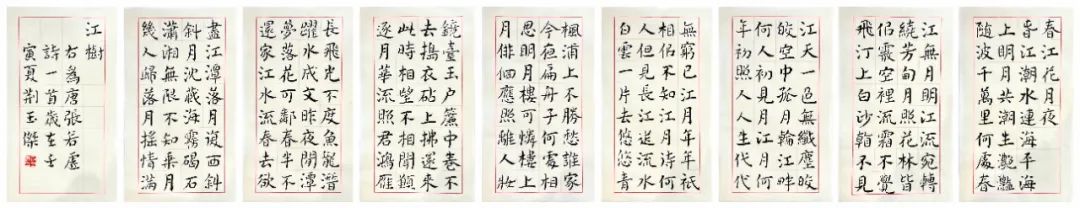 春江花月夜
春江潮水連海平海
上明月共潮生灧灧
隨波千萬里何處春
江無月明江流宛轉
繞芳甸月照花林皆
佀霰空裡流霜不覺
飛汀上白沙看不見
江天一色無纖塵皎
皎空中孤月輪江畔
何人初見月江月何
年初照人人生代代
無窮已江月年年祇
相佀不知江月待何
人但見長江送流水
白雲一片去悠悠青
楓浦上不勝愁誰家
今夜扁舟子何處相
思明月樓可憐樓上
月徘徊應照離人妝
鏡臺玉户簾中卷不
去擣衣砧上拂還來
此時相望不相聞願
逐月華流照君鴻雁
長飛光不度魚龍潛
躍水成文昨夜閒潭
夢落花可憐春半不
還家江水流春去欲
盡江潭落月復西斜
斜月沈沈藏海霧碣石
瀟湘無限路不知乘月
幾人歸落月摇情滿
江樹
右為唐張若虛
詩一首歲在壬
寅夏荆玉傑